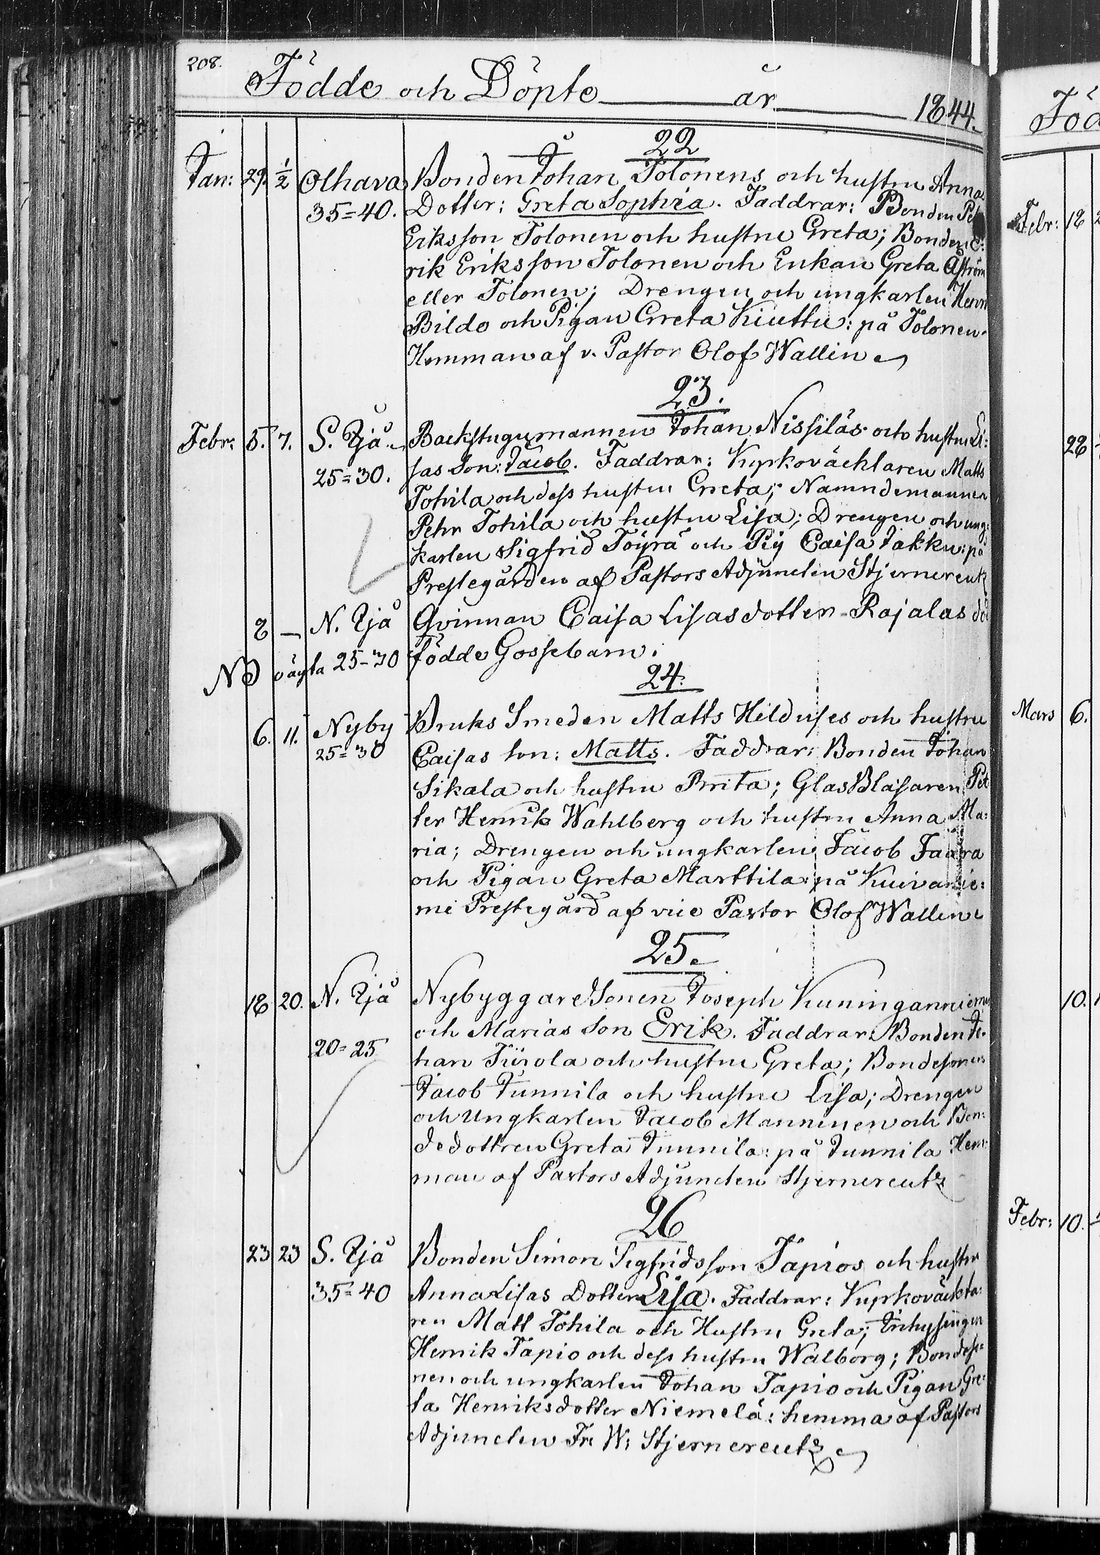 208.
Födde och Döpte år 1844.
22
Jan: 29. 1/2 Olhava Bonden Johan Tolonens och hustru Anna
35=40. Dotter: Greta Sophia. Faddrar: Bonden
Eriksson Tolonen och hustru Greta; Bonden E:
rik Eriksson Tolonen och Enkan Greta Åström
eller Tolonen; Drengen och ungkarlen
Bildo och Pigan Greta Kiuttu: på Tolonen
Hemman af v. Pastor Olof Wallin
23.
Febr: 5. 7. S. Ijå Backstugumannen Johan Nissiläs och hustru Li:
25=30. sas Son: Jacob. Faddrar: Kyrkoväcktaren Matts
Tohila och dess hustru Greta; Namndemannen
Pehr Tohila och hustru Lisa; Drengen och ung:
karlen Sigfrid Töyrä och Pig Caisa Jakku: på
Prestegården af Pastors Adjuncten Stjernereutz
8 — N. Ijå Qvinnan Caisa Lisasdotter Rajalas dö
ND oägta 25-30 födde Gossebarn.
24.
6. 11. Nyby Bruks Smeden Matts Hilduses och hustru
25=30 Caisas son: Matts. Faddrar: Bonden Johan
Sikala och hustru Brita; GlasBlasaren Pet
ter Henrik Wahlberg och hustru Anna Ma:
ria; Drengen och ungkarlen Jacob Faara
och Pigan Greta Marttila: på Kuivanie:
mi Prestegård af vice Pastor Olof Wallin
25.
18 20. N. Ijå Nybyggaresonen Joseph Kuninganniemi
och Marias Son Erik. Faddrar Bonden Jo:
20=25 han Tiirola och hustru Greta; Bondesonen
Jacob Junnila och hustru Lisa; Drengen
och Ungkarlen Jacob Manninen och Bon:
dedottren Greta Junnila: på Junnila Hem:
man af Pastors Adjuncten Stjernereutz
26
23 23 S. Ijå Bonden Simon Sigfridsson Tapios och hustru
35=40 Anna Lisas Dotter Lisa. Faddrar: Kyrkoväckta:
ren Matt Tohila och Hustru Greta; Inhysingen
Henrik Tapio och dess hustru Walborg; Bondeso:
nen och ungkarlen Johan Tapio och Pigan Gre:
ta Henriksdotter Niemelä: hemma af Pastors
Adjuncten Fr: W: Stjernereutz
Föd
Febr: 18
28
Mars 6.
10.
Febr: 10.